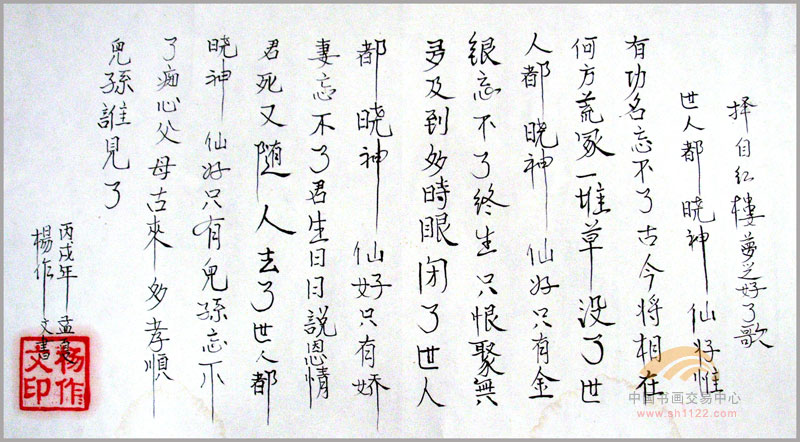 择自红樓夢之好了歌
世人都晓神仙好惟
有功名忘不了古今将相在
何方荒冢一堆草没了世
人都晓神仙好只有金
银忘不了终生只恨聚無
多及到多時眼闭了世人
都晓神仙好只有娇
妻忘不了君生日日説恩情
君死又随人去了世人都
晓神仙好只有兒孫忘不
了痴心父母古來多孝順
兒孫誰見了
丙戌年孟夏
楊作文書
杨作文印
中国书画交易中心
www.sh1122.com